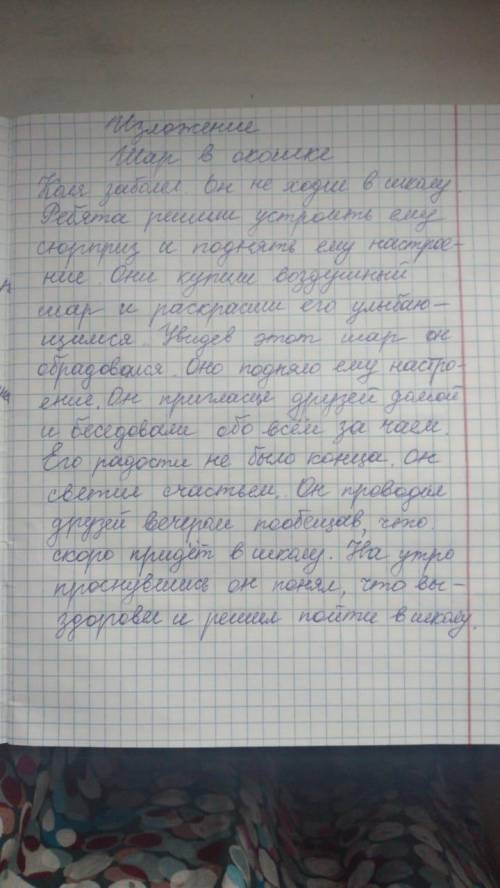 Изложение
Шар в окошке
Коля заболел. Он не ходил в школу.
Ребята решили устроить ему
сюрприз и поднять ему настрое-
ние. Они купили воздушный
шар и раскрасили его улыбаю-
щимся. Увидев этот шар он
обрадовался. Оно подняло ему настро-
ение. Он пригласил друзей домой
и беседовали обо всём за чаем.
Его радости не было конца. Он
светил счастьем. Он проводил
друзей вечером пообещав, что
скоро придёт в школу. На утро
проснувшись он понял, что вы-
здоровел и решил пойти в школу.